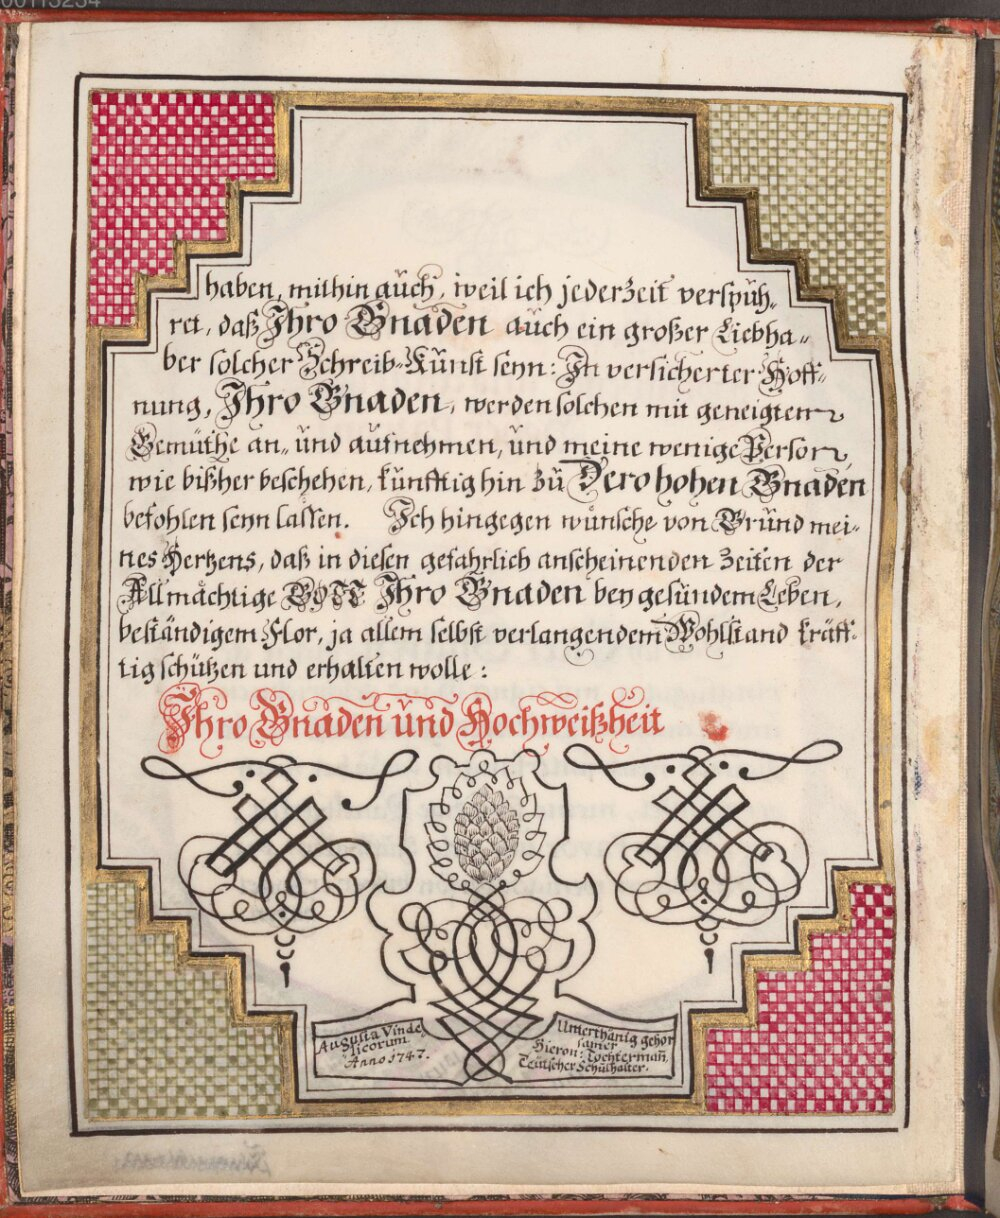 00113254
haben, mithin auch, weil ich jederzeit verspüh„
ret, daß Ihro Gnaden auch ein großer Liebha„
ber solcher Schreib-Kunst seyn: In versicherter Hoff„
nung, Ihro Gnaden, werden solchen mit geneigtem
Gemüthe an„ und aufnehmen, und meine wenige Person,
wie bißher beschehen, künfftig hin zu Dero hohen Gnaden
befohlen seyn lassen. Ich hingegen wünsche von Grund mei-
nes Hertzens, daß in diesen gefährlich anscheinenden Zeiten der
Allmächtige GOTT Ihro Gnaden bey gesundem Leben,
beständigem Flor, ja allem selbst verlangendem Wohlstand kräff-
tig schützen und erhalten wolle:
Ihro Gnaden und Hochweißheit
Augusta Vinde„
licorum
Anno 1747.
Unterthänig gehor
samer
Hieron: Tochtermañ,
Teutscher Schulhalter.